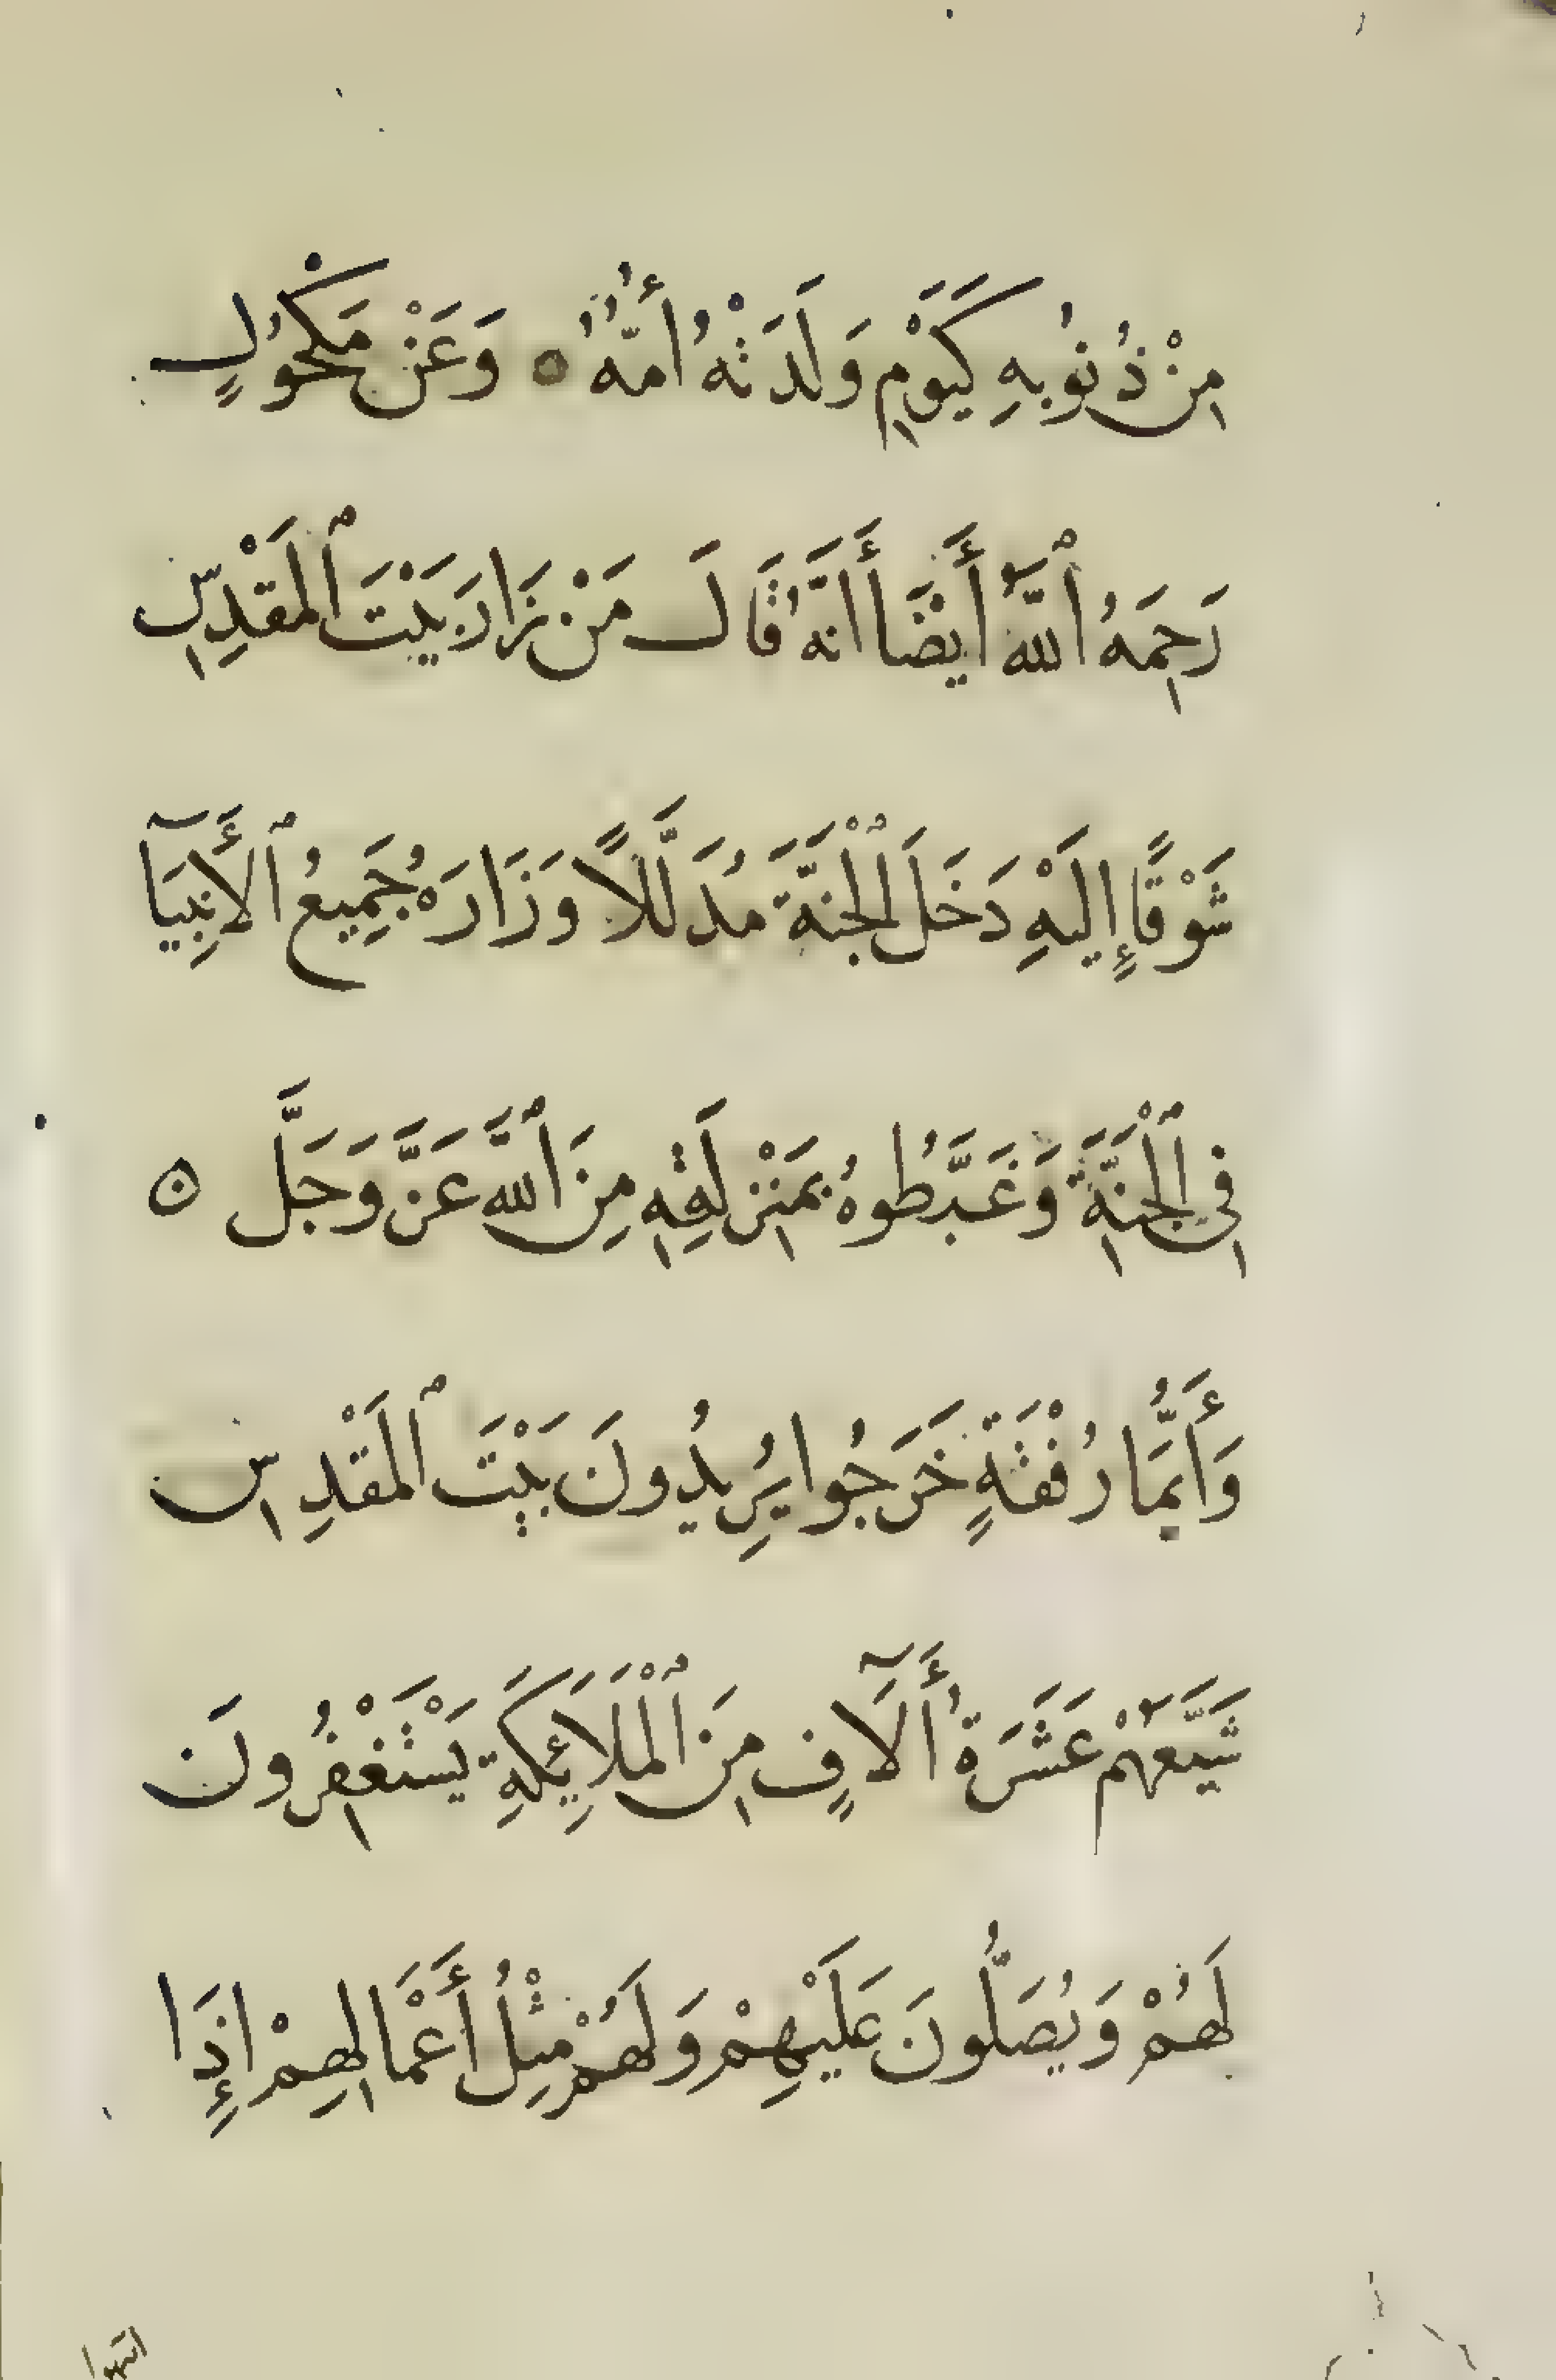 مِنْ ذُنُوبِهِ كَيَوْمِ وَلَدَتْهُ أُمُّهُ ۝ وَعَنْ مَكْحُولٍ
رَحِمَهُ ٱللَّهُ أَيْضَا أَنَّهُ قَالَ مَنْ زَارَ بَيْتَ ٱلْمَقْدِسِ
شَوْقًا إِلَيْهِ دَخَلَ ٱلْجَنَّةَ مُدَلَّلًا وَزَارَهُ جَمِيعُ ٱلْأَنْبِيَآ
فِي ٱلْجَنَّةِ وَغَبَّطُوهُ بِمَنْزِلَتِهِ مِنَ ٱللَّهِ عَزَّ وَجَلَّ ۝
وَأَيُّمَا رُفْقَةٍ خَرَجُوا يُرِيدُونَ بَيْتَ ٱلْمَقْدِسِ
شَيَّعَهُمْ عَشَرَةُ أَلَآفٍ مِنَ ٱلْمَلَايِٕكَةِ يَسْتَغْفِرُونَ
لَهُمْ وَيُصَلُّونَ عَلَيْهِمْ وَلَهُمْ مِثْلُ أَعْمَالِهِمْ إِذَا
انتهوا